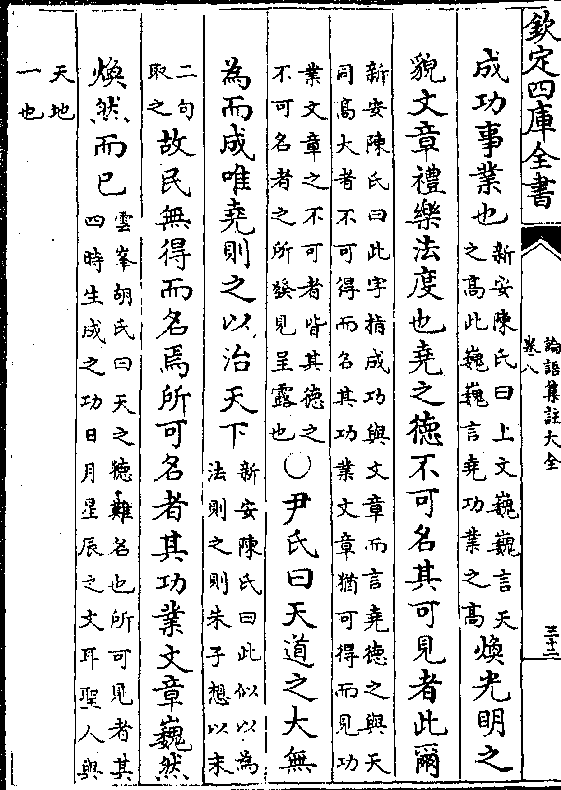 欽定四庫全書
論語集註大全
卷八
三十二
成功事業也
新安陳氏曰上文巍巍言天
之高此巍巍言堯功業之高
煥光明之
貌文章禮樂法度也堯之德不可名其可見者此爾
新安陳氏曰此字指成功與文章而言堯德之與天
同高大者不可得而名其功業文章猶可得而見功
業文章之不可者皆其德之
不可名者之所發見呈露也
○尹氏曰天道之大無
為而成唯堯則之以治天下
新安陳氏曰此似以為
法則之則朱子想以末
二句
取之
故民無得而名焉所可名者其功業文章巍然
煥然而已
雲峯胡氏曰天之德難名也所可見者其
四時生成之功日月星辰之文耳聖人與
天地
一也